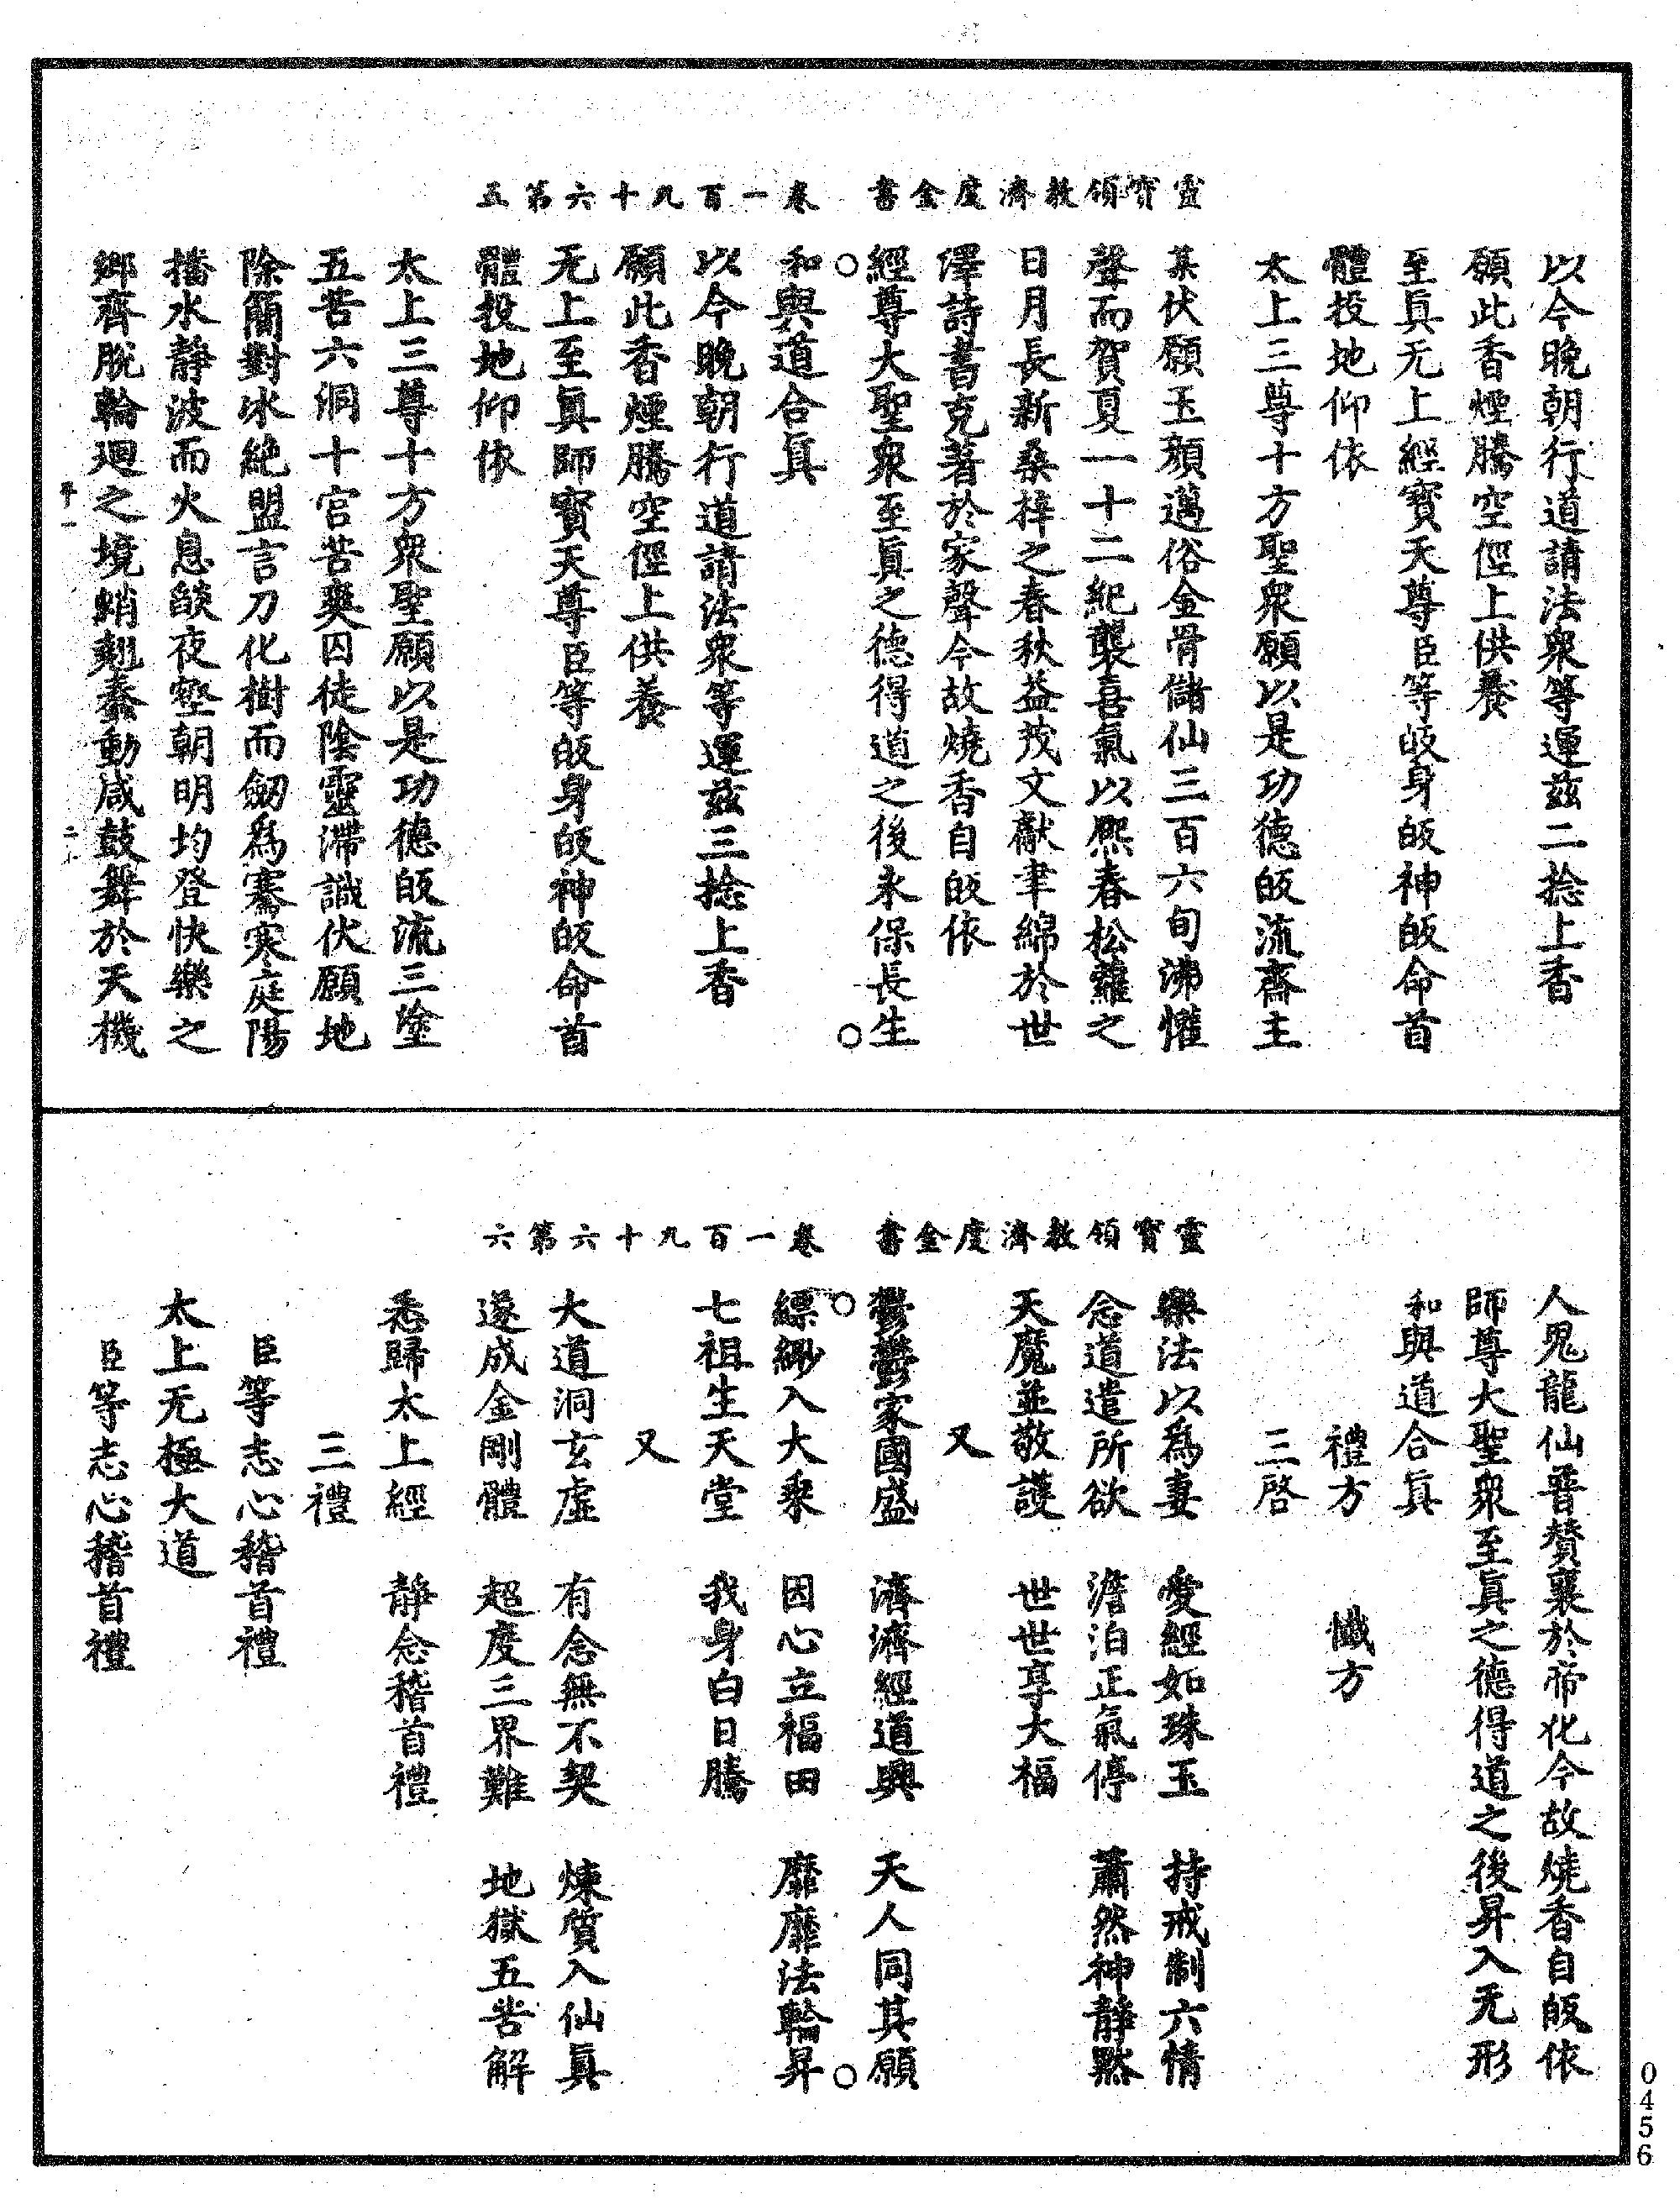 靈寶領教濟度金書　卷一百九十六第五
以今晚朝行道請法衆等運兹二捻上香
願此香煙騰空徑上供養
至眞无上經寶天尊臣等皈身皈神皈命首
體投地仰依
太上三尊十方聖衆願以是功德皈流齋主
某伏願玉顔邁俗金骨儲仙三百六旬沸懽
聲而賀夏一十二紀襲喜氣以熙春松蘿之
日月長新桑梓之春秋益茂文獻聿綿於世
澤詩書克著於家聲今故燒香自皈依
經尊大聖衆至眞之德得道之後永保長生
和與道合眞
以今晚朝行道請法衆等運兹三捻上香
願此香煙騰空徑上供養
无上至眞師寶天尊臣等皈身皈神皈命首
體投地仰依
太上三尊十方衆聖願以是功德皈流三塗
五苦六洞十宮苦爽囚徒陰靈滯識伏願地
除簡對冰絶盟言刀化樹而劒爲騫寒庭陽
播水靜波而火息燄夜壑朝明均登快樂之
鄉齊脫輪廻之境蛸翹蠢動咸鼓舞於天機
靈寶領教濟度金書　卷一百九十六第六
人鬼龍仙晉贊襄於帝化今故燒香自皈依
師尊大聖衆至眞之德得道之後昇入无形
和與道合眞
禮方　懺方
三啓
樂法以爲妻　愛經如珠玉　持戒制六情
念道遣所欲　澹泊正氣停　蕭然神靜默
天魔並敬護　世世享大福
又
鬱鬱家國盛　濟濟經道興　天人同其願
縹緲入大乘　因心立福田　靡靡法輪昇
七祖生天堂　我身白日騰
又
大道洞玄虛　有念無不契　煉質入仙眞
遂成金剛體　超度三界難　地獄五苦解
悉歸太上經　靜念稽首禮
三禮
臣等志心稽首禮
太上无極大道
臣等志心稽首禮
0456